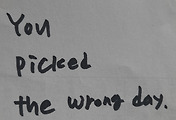 You
picked
the wrong day.